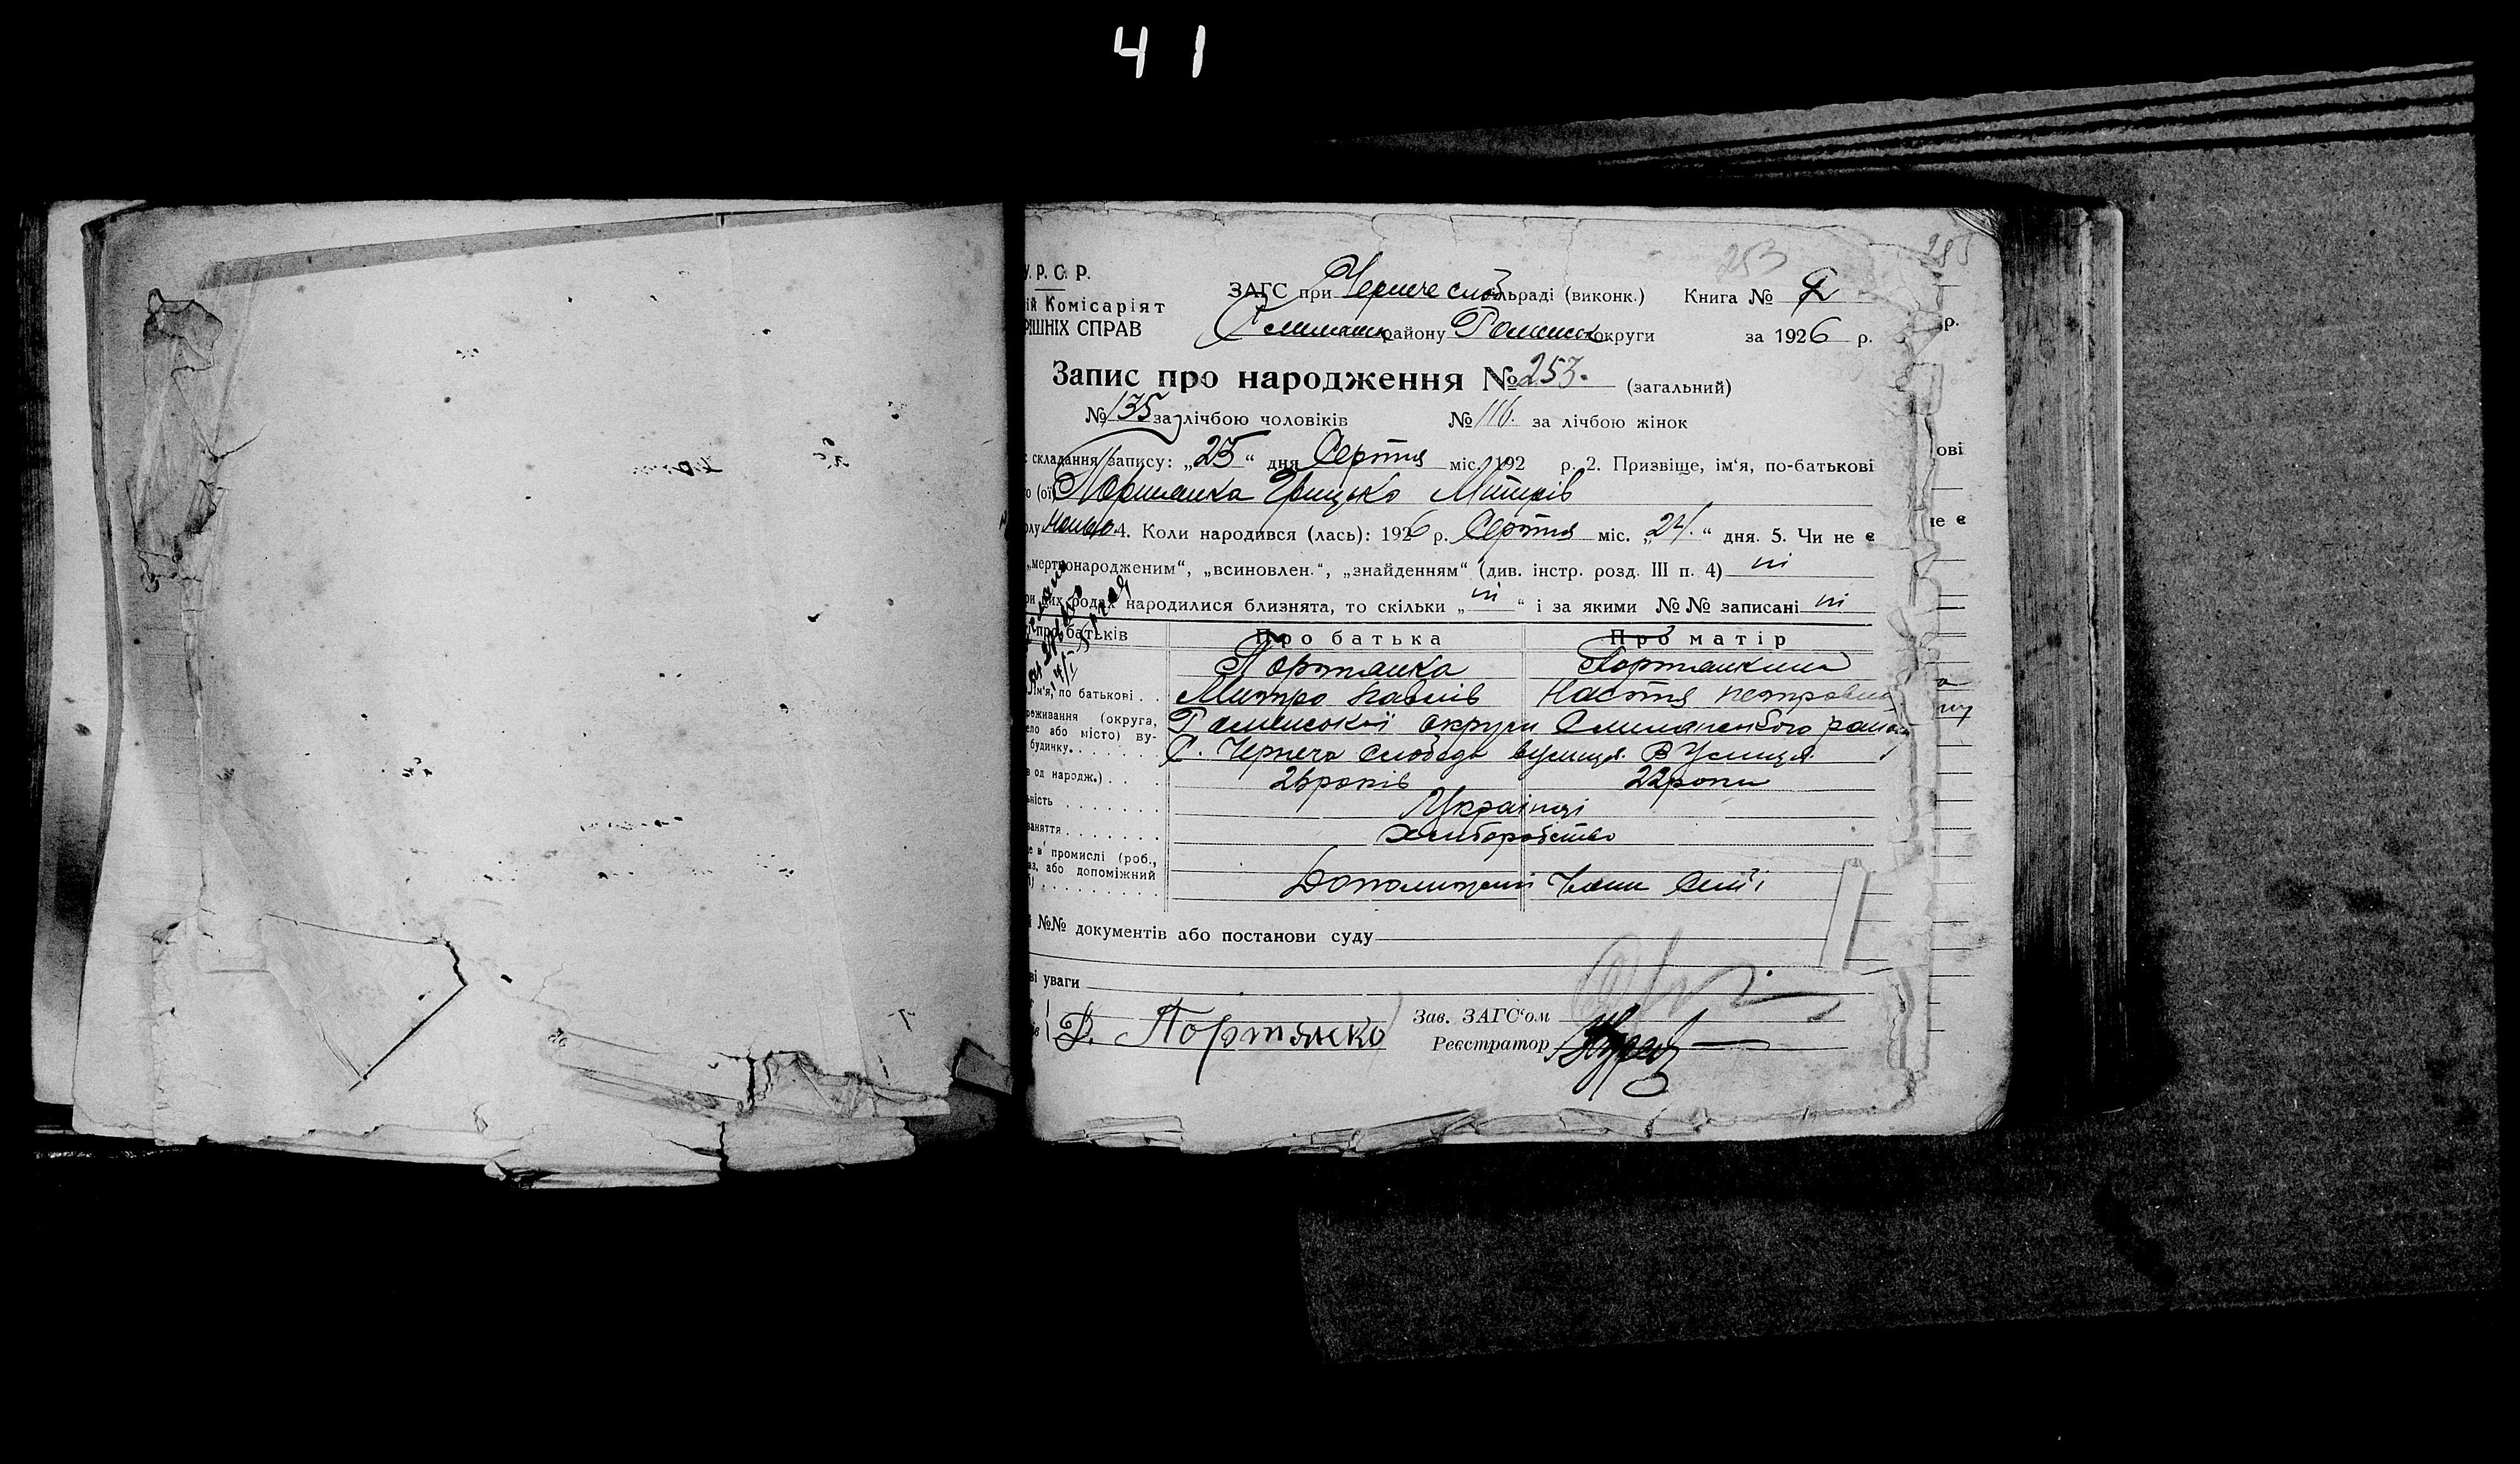 41
253
255
У. Р. С. Р.
ій Комісаріят
РІШНІХ СПРАВ
ЗАГС при Чернече слоб ільраді (виконк.) Книга № 2
району Роменськ округи за 1926 р.
р.
Запис про народження № 253. (загальний)
№ 135 за лічбою чоловіків № 116. за лічбою жінок
складання запису: „25“ дня Серпня міс. 192 р. 2. Призвіще, ім‘я, по-батькові
ові
о (ої) Портянка Грицько Митрів
4. Коли народився (лась): 1926 р. Серпня міс. „24.“ дня. 5. Чи не є
не є
„мертвонародженим“, „всиновлен.“, „знайденням“ (див. інстр. розд. III п. 4) ні
ри цих родах народилися близнята, то скільки „ні“ і за якими №№ записані ні
про батьків Про батька Про матір
Портянка Портянкина
Ім‘я, по батькові . . Митро Павлів Настя петровна
роживання (округа, Роменської округи Смілянського району
ело або місто) ву-
будинку. . . . . . С. Чернеча слобода вулиця В Улиця
в од народж.) . . . 26 років 22 роки
ьність . . . . . . . Українці
заняття . . . . . . . Хлиборобство
е в промислі (роб.,
аз, або допоміжний
. . . . . . . . . Допоміжний Члени Сем'ї
№№ документів або постанови суду
ві уваги
Д. Портянко Зав. ЗАГС‘ом
Реєстратор